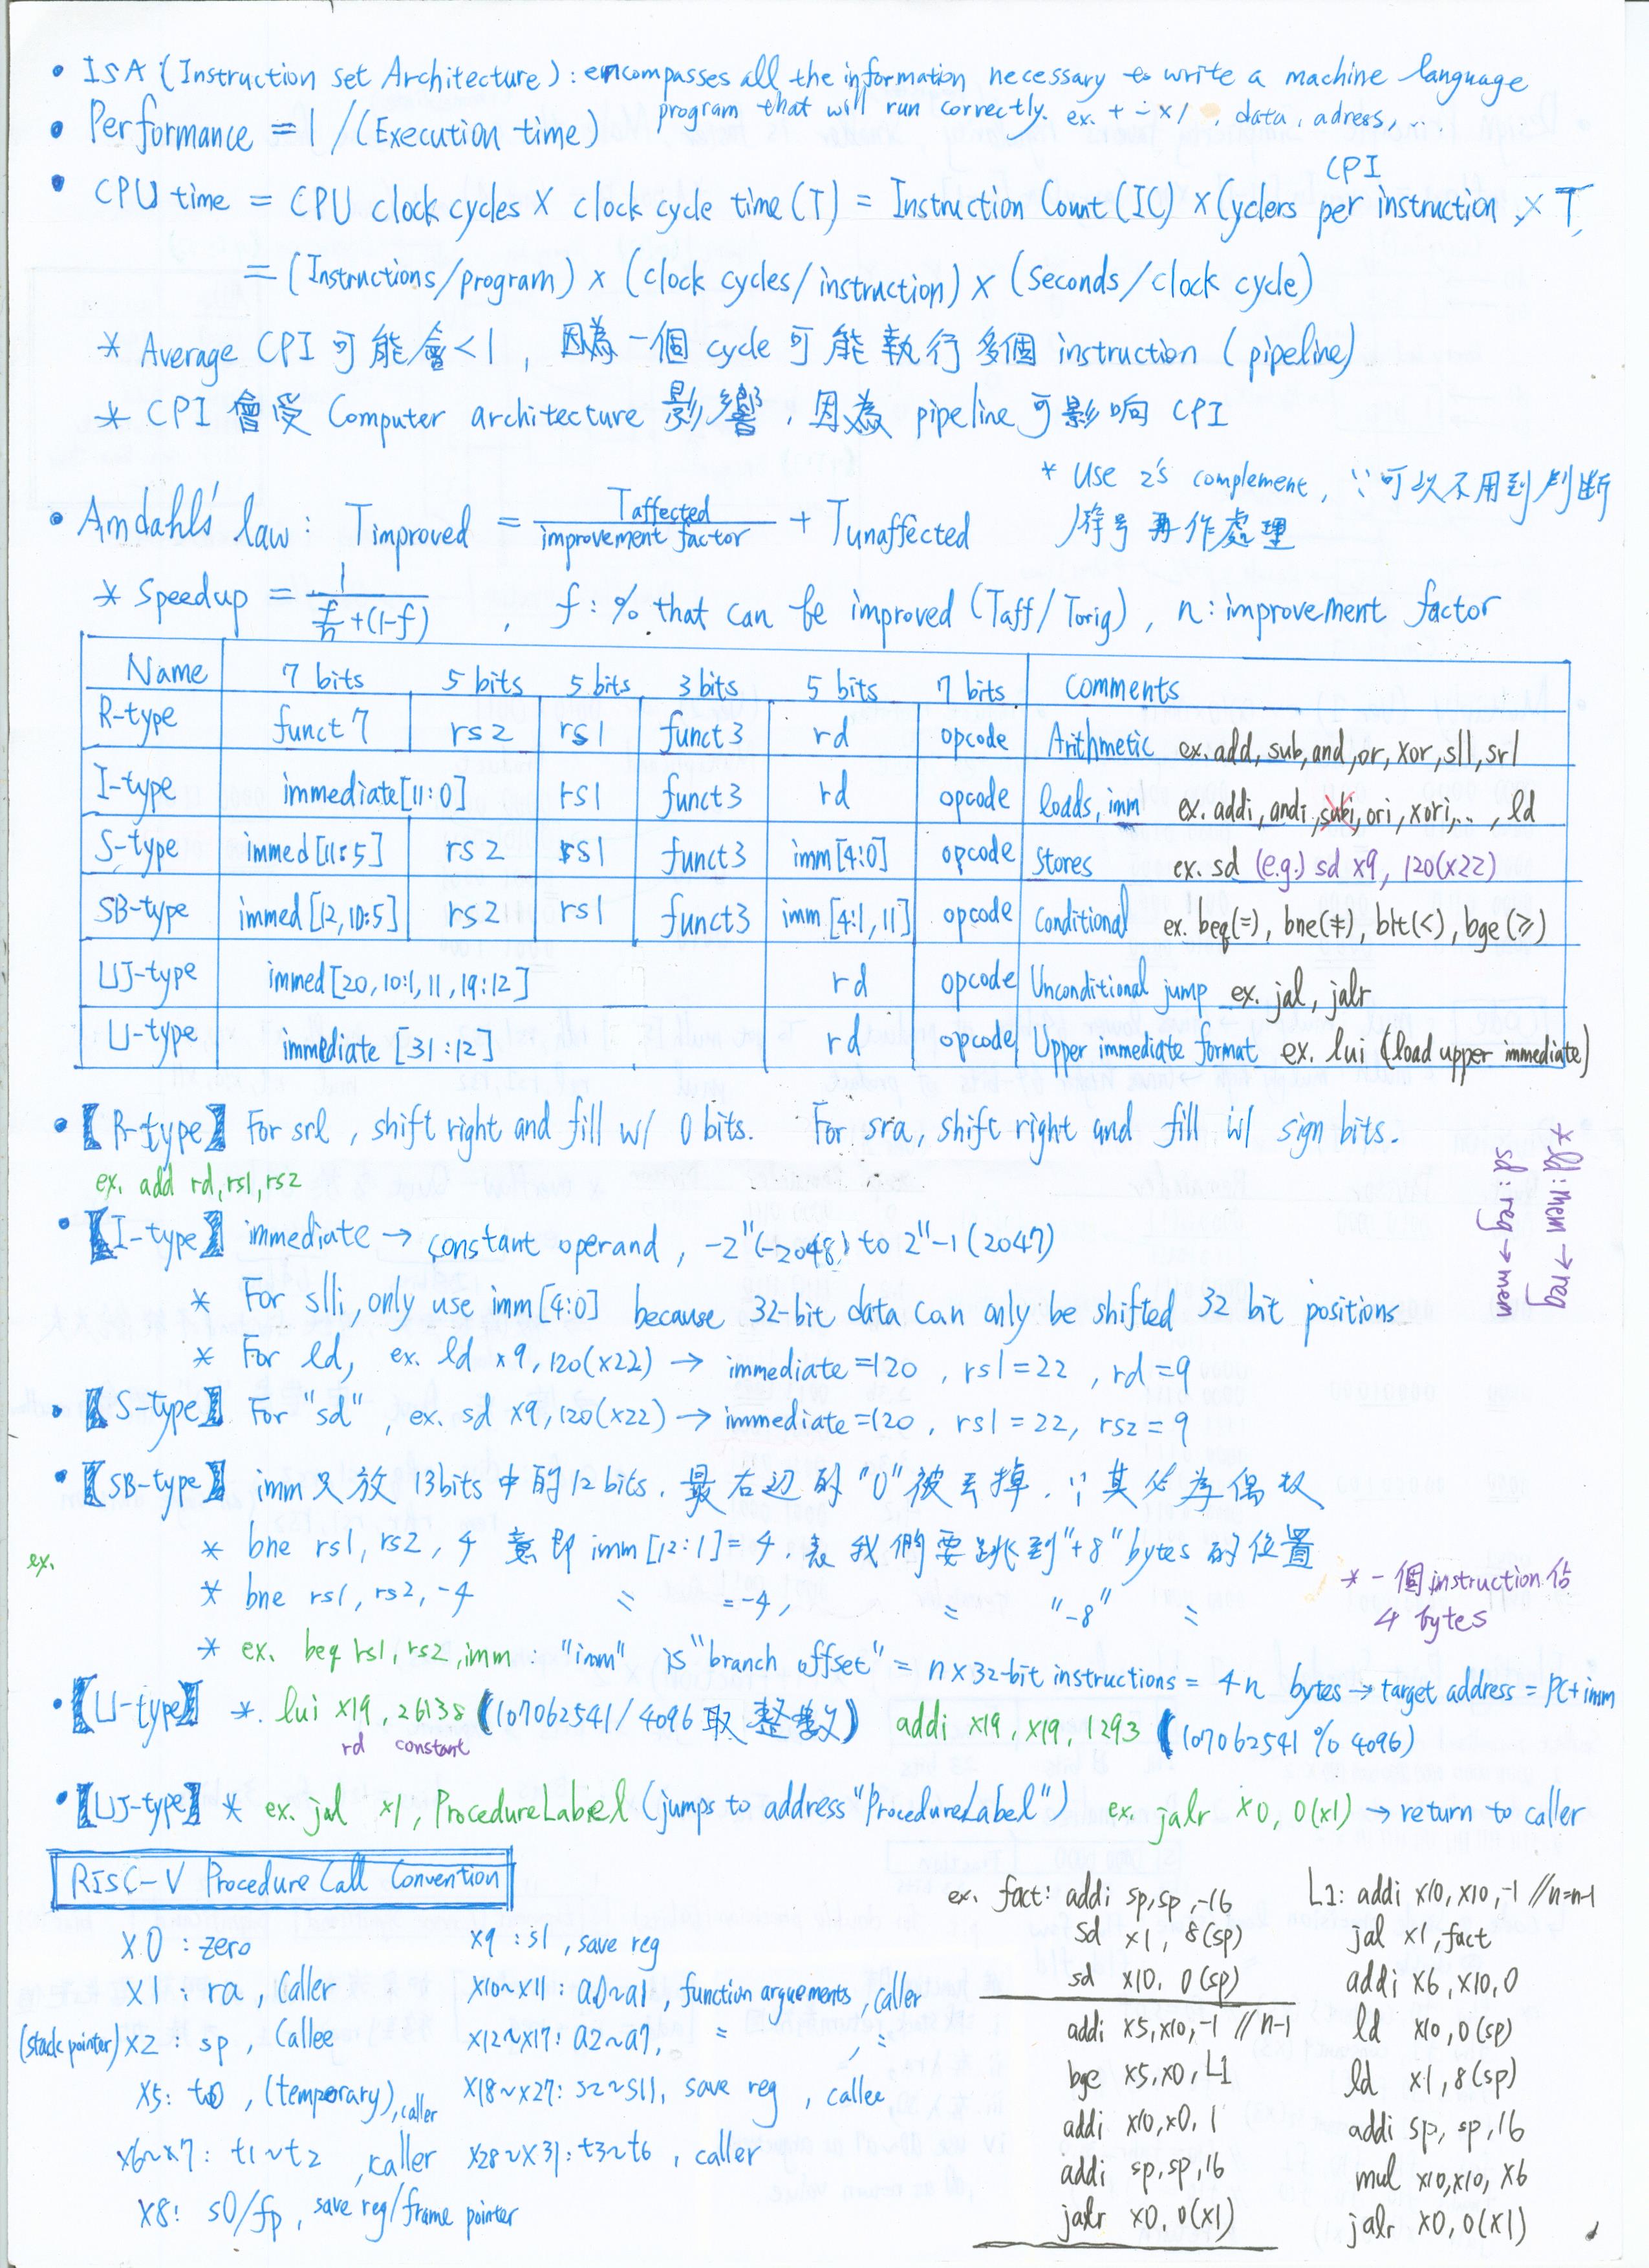 • ISA (Instruction set Architecture) : encompasses all the information necessary to write a machine language
program that will run correctly. ex. + - × / , data, adress, ...
• Performance = 1 / (Execution time)
CPI
• CPU time = CPU clock cycles × clock cycle time (T) = Instruction Count (IC) × Cyclers per instruction × T
= (Instructions/program) × (clock cycles/instruction) × (seconds/clock cycle)
* Average CPI 可能會<1 , 因為一個 cycle 可能執行多個 instruction (pipeline)
* CPI 會受 Computer architecture 影響 , 因為 pipeline 可影响 CPI
* Use 2's complement, ∵可以不用到判斷
符号再作處理
• Amdahl's law : Timproved = Taffected / improvement factor + Tunaffected
* Speedup = 1 / (f/n + (1-f)) , f : % that can be improved (Taff/Torig) , n : improvement factor
Name 7 bits 5 bits 5 bits 3 bits 5 bits 7 bits comments
R-type funct 7 rs2 rs1 funct 3 rd opcode Arithmetic ex. add, sub, and, or, xor, sll, srl
I-type immediate [11:0] rs1 funct3 rd opcode loads, imm ex. addi, andi, subi, ori, xori, ... , ld
S-type immed [11:5] rs2 rs1 funct3 imm [4:0] opcode stores ex. sd (e.g.) sd x9, 120(x22)
SB-type immed [12,10:5] rs2 rs1 funct3 imm [4:1, 11] opcode Conditional ex. beq(=), bne(≠), blt(<), bge(≥)
UJ-type immed [20, 10:1, 11, 19:12] rd opcode Unconditional jump ex. jal, jalr
U-type immediate [31:12] rd opcode Upper immediate format ex. lui (load upper immediate)
• 【R-type】 For srl , shift right and fill w/ 0 bits. For sra, shift right and fill w/ sign bits.
ex. add rd, rs1, rs2
* ld : mem → reg
sd : reg → mem
• 【I-type】 immediate → constant operand , -2^11 (-2048) to 2^11-1 (2047)
* For slli, only use imm [4:0] because 32-bit data can only be shifted 32 bit positions
* For ld, ex. ld x9, 120(x22) → immediate =120 , rs1 = 22 , rd = 9
• 【S-type】 For "sd" , ex. sd x9, 120(x22) → immediate =120 , rs1 = 22, rs2 = 9
• 【SB-type】 imm 只放 13bits 中的 12 bits . 最右边的 "0" 被丟掉 . ∵其必為偶数
ex. * bne rs1, rs2, 4 意即 imm [12:1] = 4 . 表我們要跳到 "+8" bytes 的位置
* bne rs1, rs2, -4 = = -4, = "-8" =
* 一個 instruction 佔
4 bytes
* ex. beq rs1, rs2, imm : "imm" is "branch offset" = n × 32-bit instructions = 4n bytes → target address = PC + imm
• 【U-type】 * . lui x19, 26138 (107062541/4096 取整數) addi x19, x19, 1293 (107062541 % 4096)
rd constant
• 【UJ-type】 * ex. jal x1, ProcedureLabel (jumps to address "ProcedureLabel") ex. jalr x0, 0(x1) → return to caller
RISC-V Procedure Call Convention
x0 : zero x9 : s1 , save reg
x1 : ra , Caller x10~x11 : a0~a1 , function arguements , caller
(stack pointer) x2 : sp , Callee x12~x17 : a2~a7, = , =
x5 : t0 , (temporary), caller x18~x27 : s2~s11, save reg , callee
x6~x7 : t1~t2 , caller x28~x31 : t3~t6 , caller
x8 : s0/fp , save reg/frame pointer
ex. fact: addi sp, sp, -16
sd x1, 8(sp)
sd x10, 0(sp)
addi x5, x10, -1 // n-1
bge x5, x0, L1
addi x10, x0, 1
addi sp, sp, 16
jalr x0, 0(x1)
L1: addi x10, x10, -1 // n=n-1
jal x1, fact
addi x6, x10, 0
ld x10, 0(sp)
ld x1, 8(sp)
addi sp, sp, 16
mul x10, x10, x6
jalr x0, 0(x1)